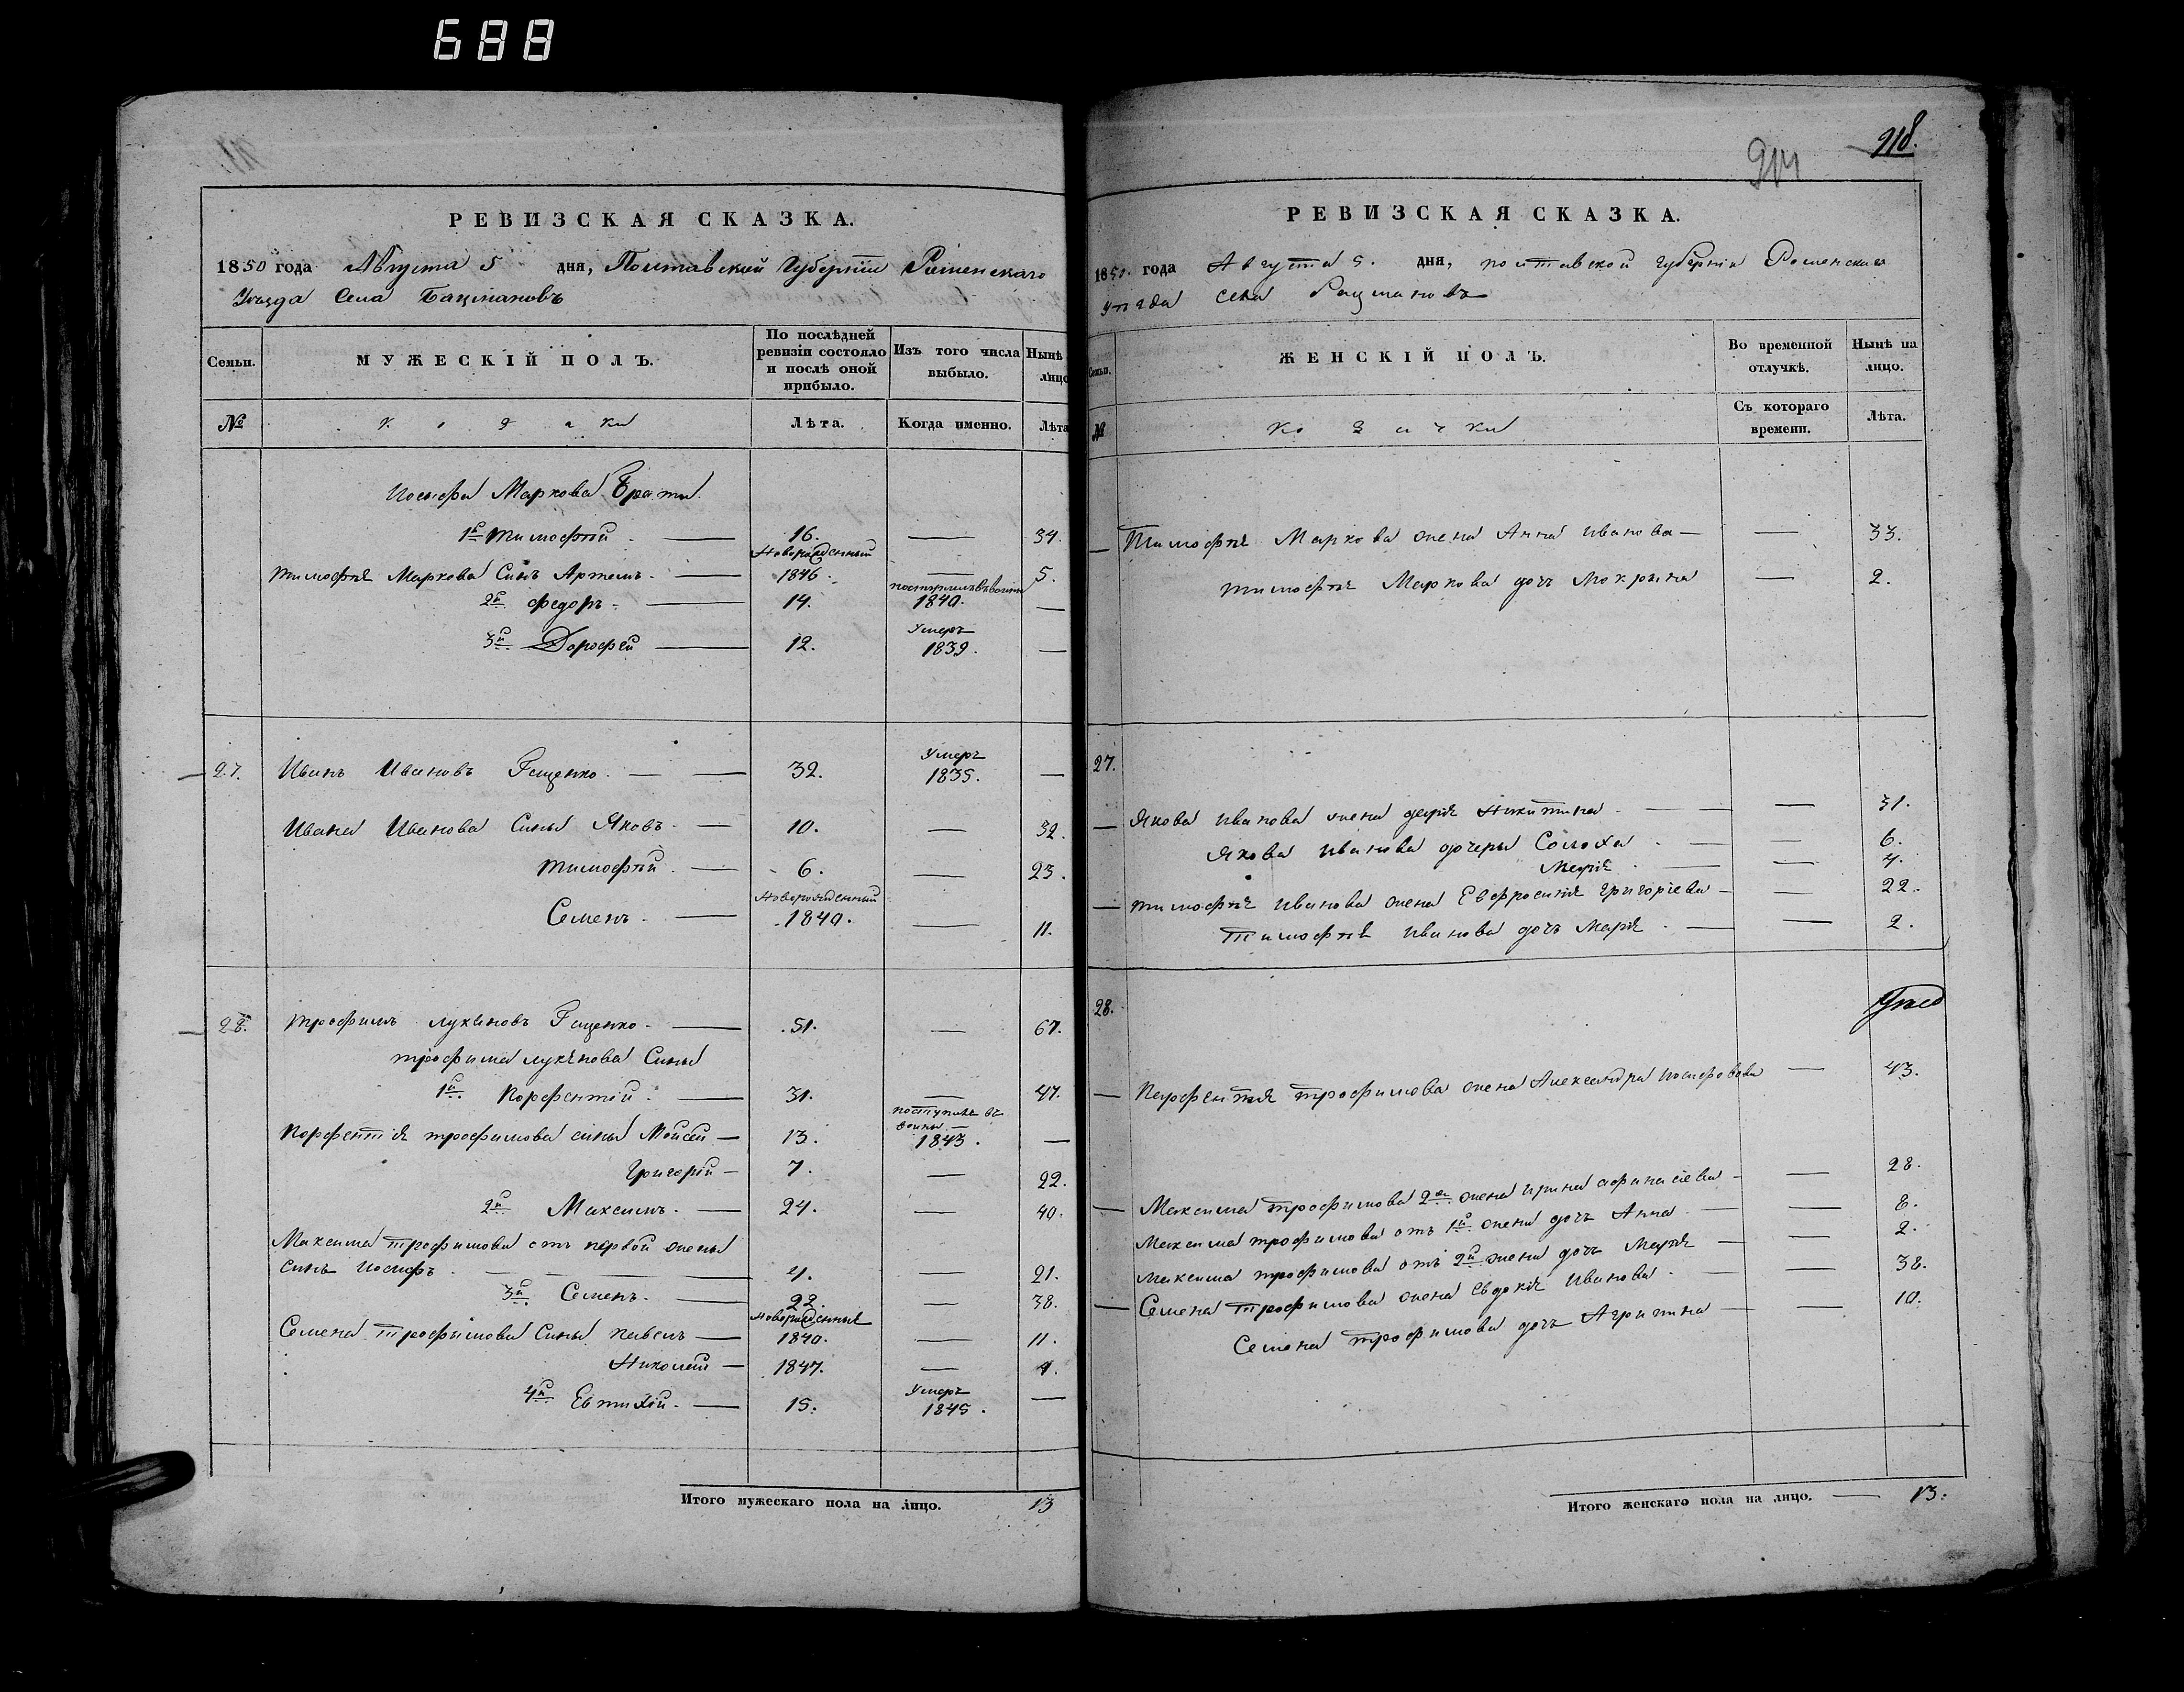 688
РЕВИЗСКАЯ СКАЗКА.
1850 года Августа 5 дня, Полтавской Губернiи Роменскаго
Уѣзда Села Бацмановъ
Семьи. МУЖЕСКІЙ ПОЛЪ. По послѣдней ревизіи состояло и послѣ оной прибыло. Изъ того числа выбыло. Нынѣ лицо
№ козаки Лѣта. Когда именно. Лѣта
Иосифа Маркова Братья
1й Тимофѣй 16. — 34.
Тимофѣя Маркова Сынъ Артемъ Новорожденный 1846. — 5.
2й Федоръ 14. 1840. —
3й Дорофей 12. Умеръ 1839. —
27. Иванъ Ивановъ Гащенко 32. Умеръ 1835. —
Ивана Иванова Сыны Яковъ 10. — 32.
Тимофѣй 6. — 23.
Семенъ Новорожденный 1840. — 11.
28. Трофимъ Лукъяновъ Гащенко 51. — 67.
Трофима Лукянова Сыны
1й Порфентій 31. — 47.
Порфентія Трофимова сыны Мойсей 13. поступилъ въ воины 1843. —
Григорій 7. — 22.
2й Максимъ 24. — 40.
Максима Трофимова отъ первой жены
Сынъ Иосифъ 4. — 21.
3й Семенъ 22. — 38.
Семена Трофимова Сыны Павелъ Новорожденныя 1840. — 11.
Николай 1847. — 4.
4й Евтихій 15. Умеръ 1845. —
Итого мужескаго пола на лицо. 13
218.
РЕВИЗСКАЯ СКАЗКА.
1850. года Августа 5. дня, полтавской губерніи Роменскаго
уѣзда села Бацмановъ
Семьи. ЖЕНСКІЙ ПОЛЪ. Во временной отлучкѣ. Нынѣ на лицо.
№ козачки Съ котораго времени. Лѣта.
Тимофѣя Маркова жена Анна Иванова — 33.
Тимофѣя Маркова дочь Мокрина — 2.
27.
Якова Иванова жена дарія Никитина — 31.
Якова Иванова дочери Солоха — 6.
Марія — 4.
Тимофѣя Иванова жена Евфросинія Григоріева — 22.
Тимофѣя Иванова дочь Марія — 2.
28.
Парфентія Трофимова жена Александра Иосифовова — 43.
Максима Трофимова 2я жена Ирина Афанасіева — 28.
Максима Трофимова отъ 1й жены дочь Анна — 8.
Максима Трофимова отъ 2й жены дочь Марія — 2.
Семена Трофимова жена Евдокія Иванова — 38.
Семена Трофимова дочь Агрипина — 10.
Итого женскаго пола на лицо. — 13.